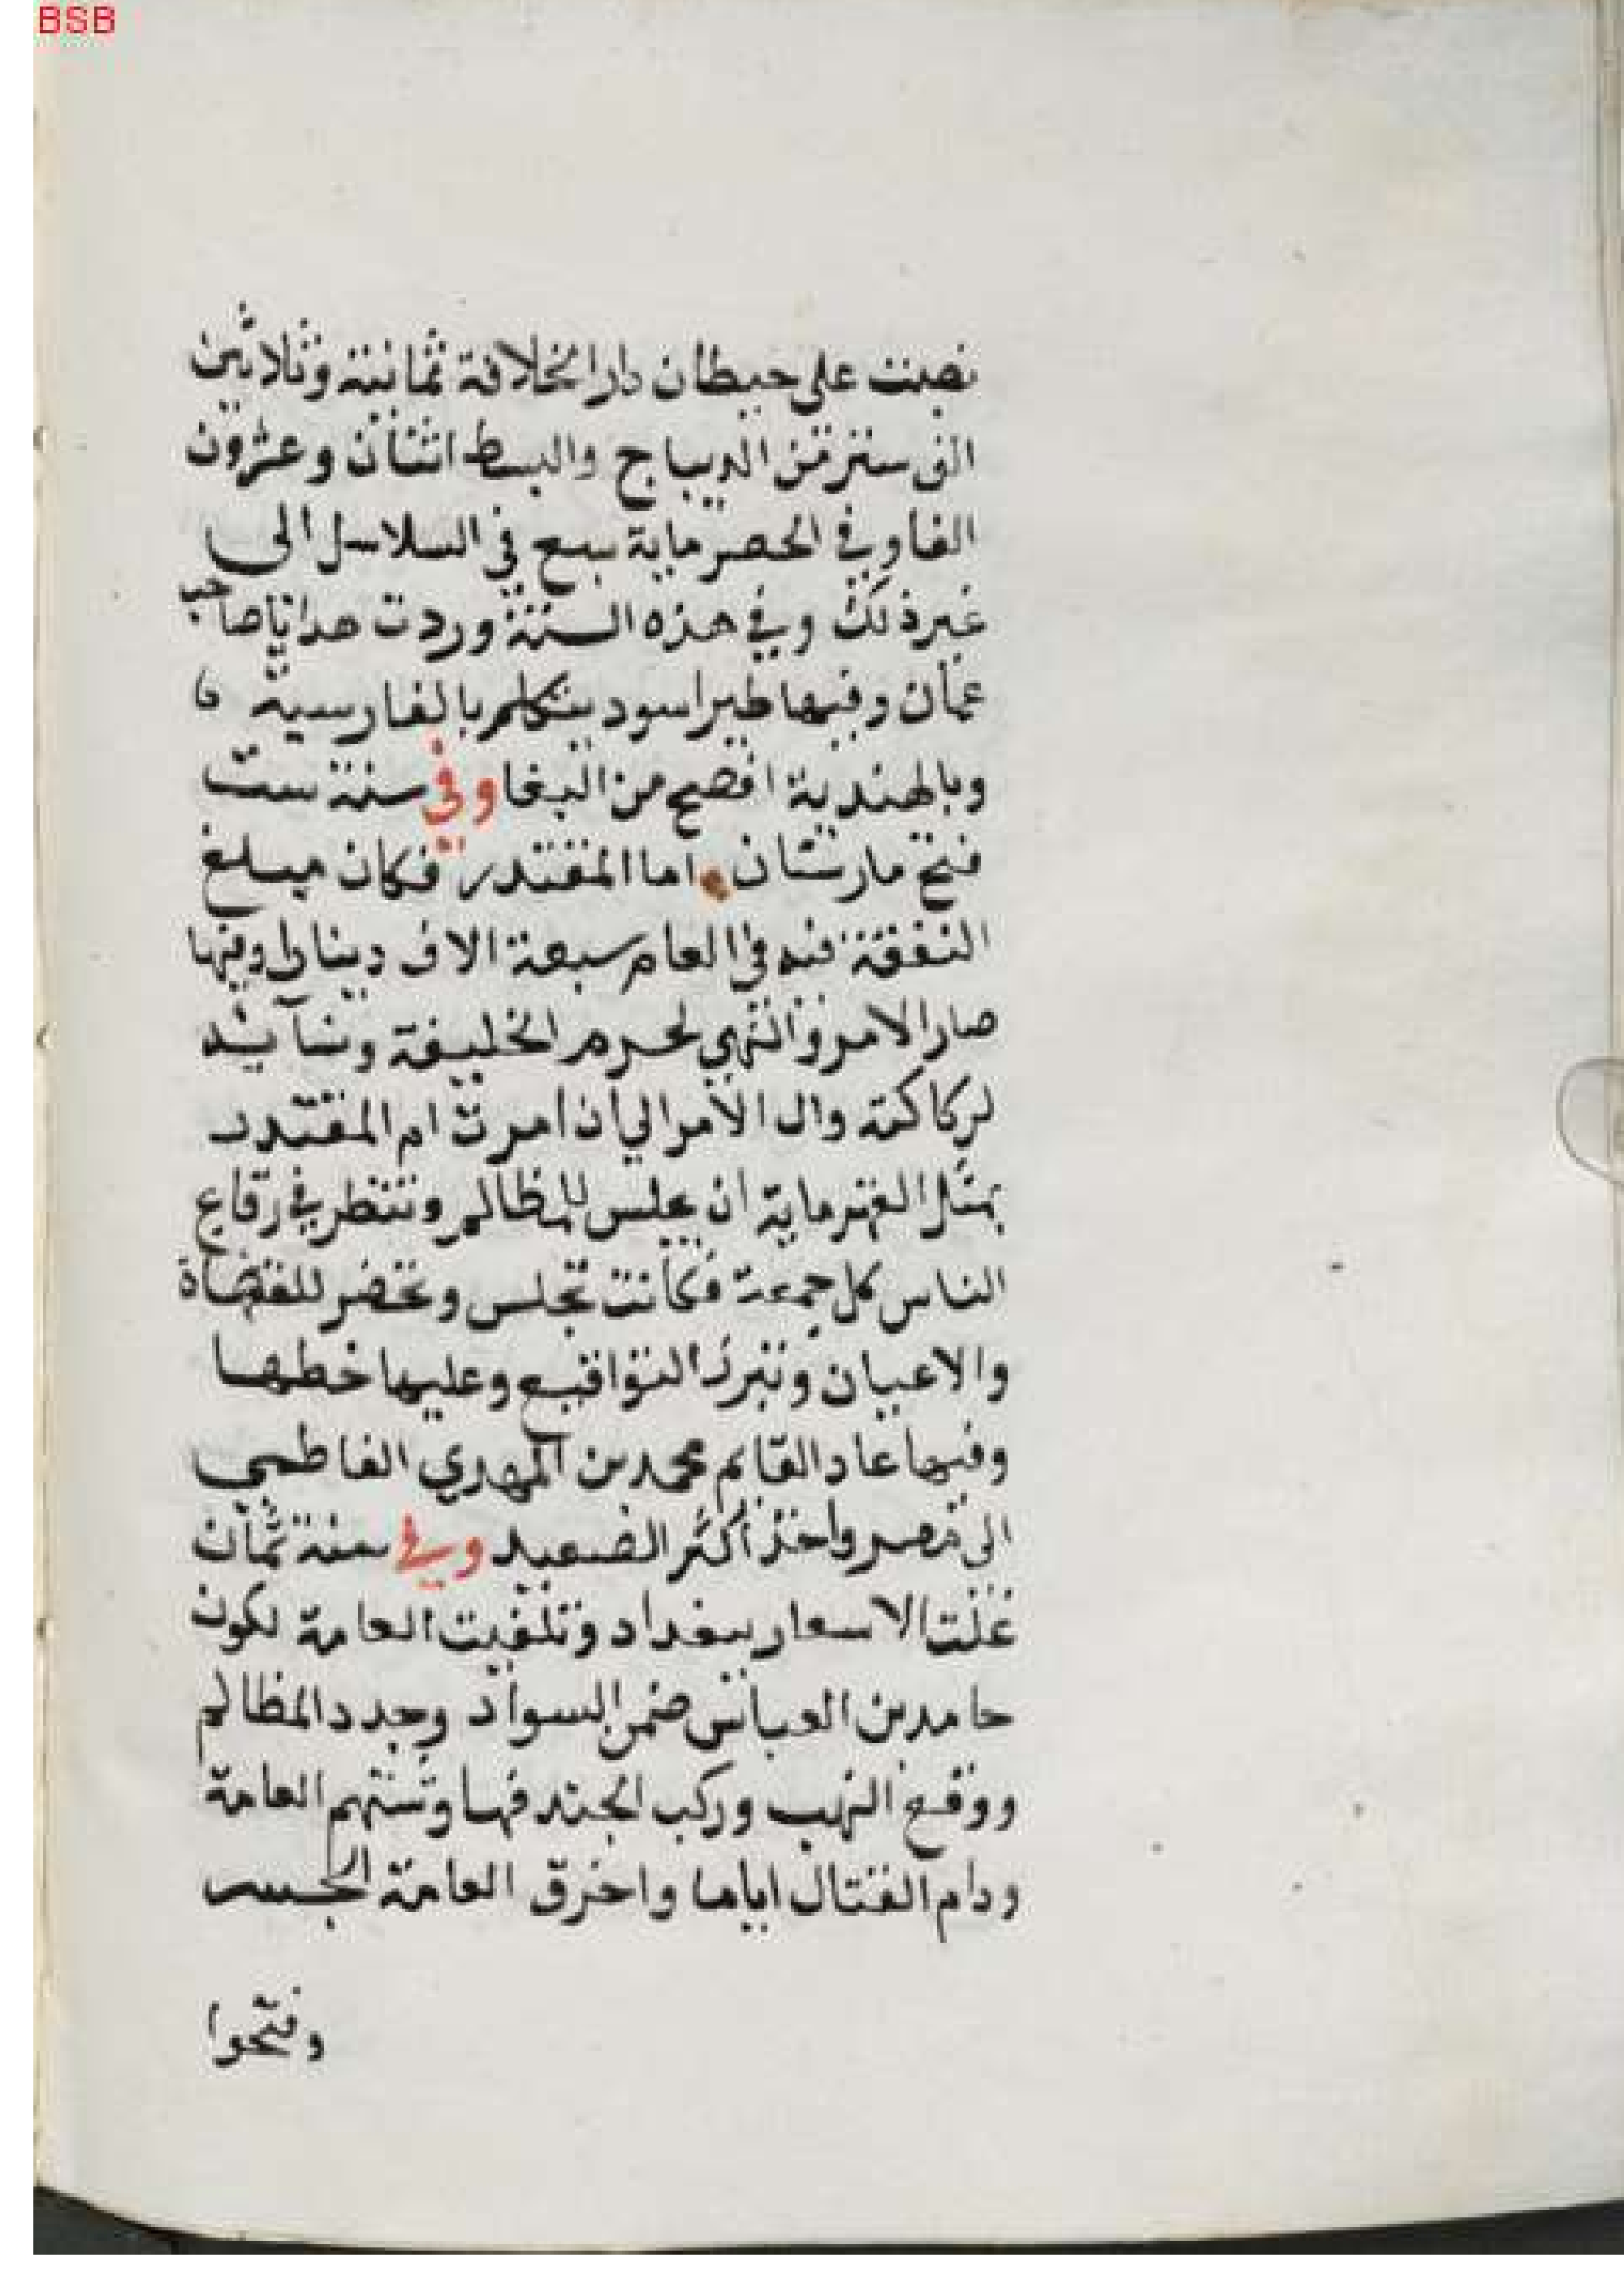 BSB
نصبت على حيطان دار الخلافة ثمانية وثلاثين
الف ستر من الديباج والبسط اثنان وعشرون
الفا وفي الحصر ماية سبع في السلاسل الى
غير ذلك وفي هذه السنة وردت هدايا صاحب
عمان وفيها طير اسود يتكلم بالفارسية
وبالهندية افصح من الببغا وفي سنة ست
فتح مارستان اما المقتدر فكان مبلغ
النفقة فيه في العام سبعة الاف دينار وفيها
صار الامر والنهي لحرم الخليفة ونسآيه
لركاكته وال الامر الي ان امرت ام المقتدر
بمثل القهرماية ان يجلس للمظالم وتنظر في رقاع
الناس كل جمعة فكانت تجلس وتحضر للقضاة
والاعيان وتبرز التواقيع وعليها خطها
وفيها عاد القايم محمد بن المهدي الفاطمي
الى مصر واخذ اكثر الصعيد وفي سنة ثمان
غلت الاسعار ببغداد العامة لكون
حامد بن العباس ضمن السواد وجدد المظالم
ووقع النهب وركب الجند فيها وشتتهم العامة
ودام القتال اياما واحرق العامة الجسر
وفتحوا